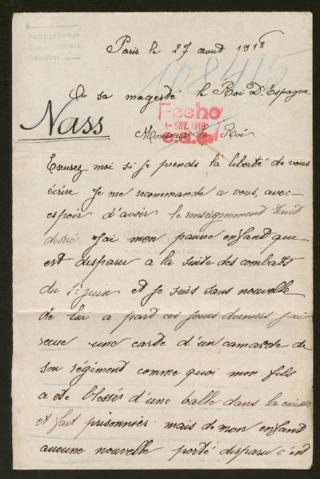 Paris le 27 aout 1918
108415
A sa magesté le Roi D'Espagne
Fecho
1- SET. 1918
Nass
Monsieur le Roi
Excusez moi si je prends la liberté de vous
écrire Je me recommande a vous, avec
espoir d'avoir le renseignement tant
désiré J'ai mon pauvre enfant qui
est disparu a la suite des combats
du 1er juin et je suis sans nouvelle
de lui a part ces jours derniers j'ai
reçue une carte d'un camarade de
son régiment comme quoi mon fils
a été blessés d'une balle dans la cuisse
et fait prisonnier mais de mon enfant
aucune nouvelle porté disparu c'est